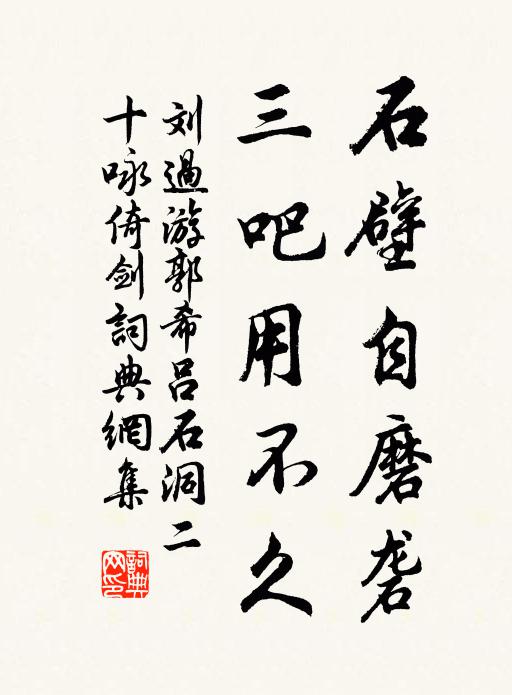 石壁自磨砻
三吧用不久
刘過游郭希吕石洞二
十咏倚劍詞典網集
詞典網印